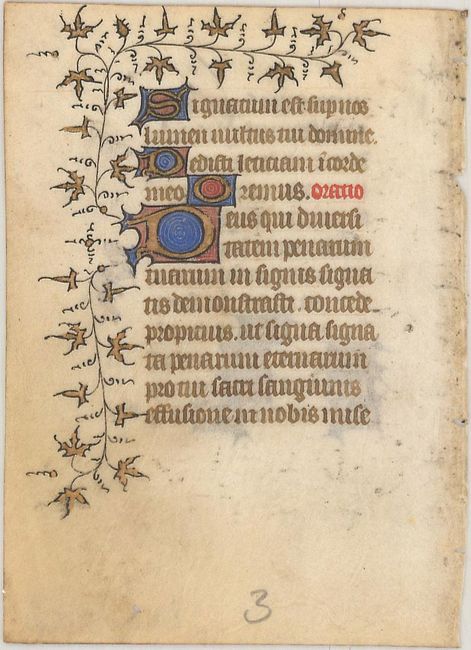 Signatum est sup nos
lumen uultus tui domine.
Dedisti leticiam ī corde
meo Oremus. Oratio
Deus qui diuersi
tatem penarum
tuarum in signis signa
tis demonstrasti. concede
propicius. ut signa signa
ta penarum eternarum
pro tui sacri sanguinis
effusione in nobis mise
3